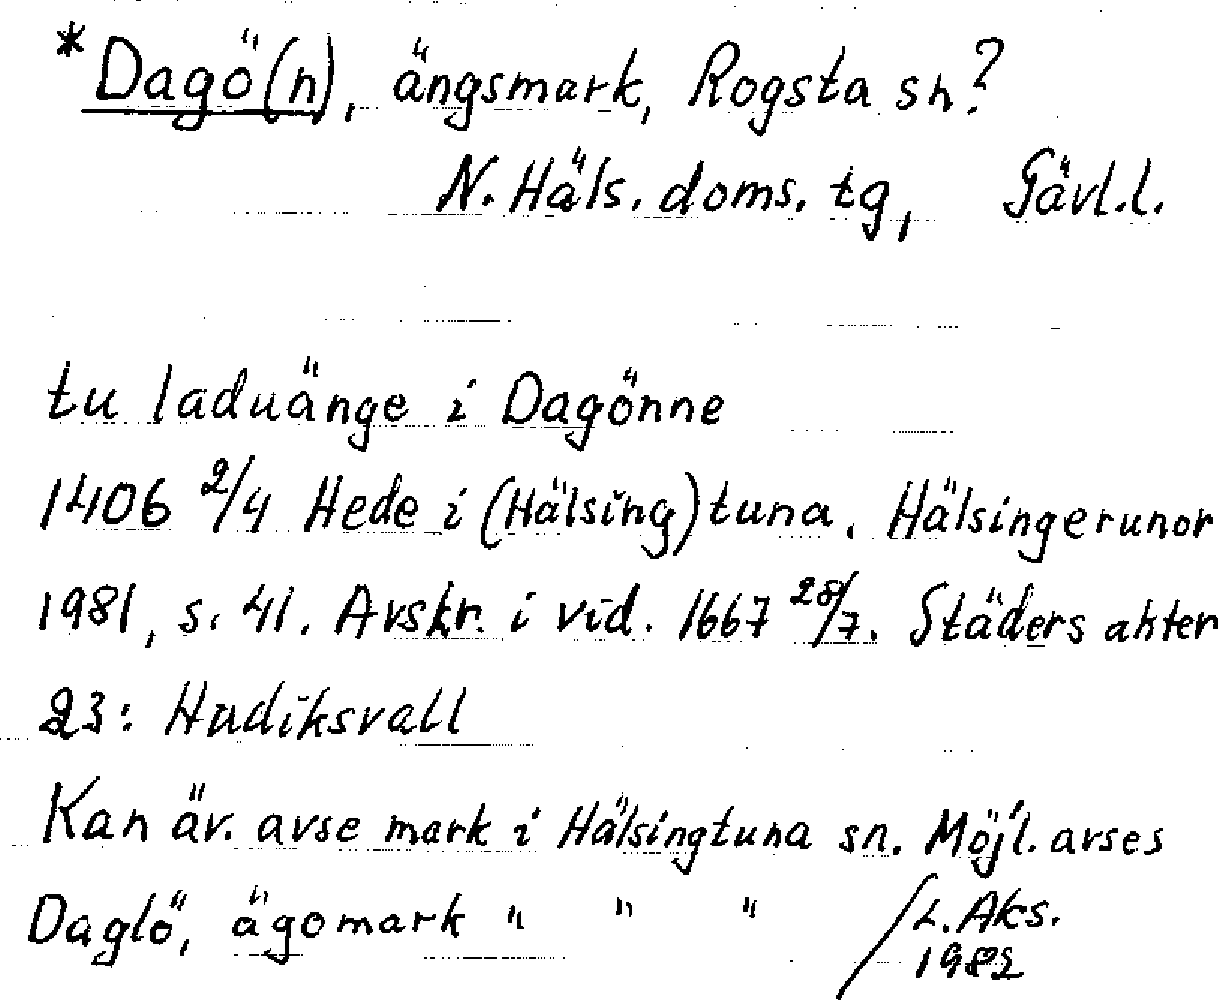 *Dagö(n), ängsmark, Rogsta sn?
N. Häls. doms. tg, Gävl.l.
tu laduänge i Dagönne
1406 2/4 Hede i (Hälsing)tuna. Hälsingerunor
1981, s. 41. Avskr. i vid. 1667 28/7. Städers akter
23: Hudiksvall
Kan äv. avse mark i Hälsingtuna sn. Möjl. avses
Daglö, ägomark " " "
/L. Aks.
1982